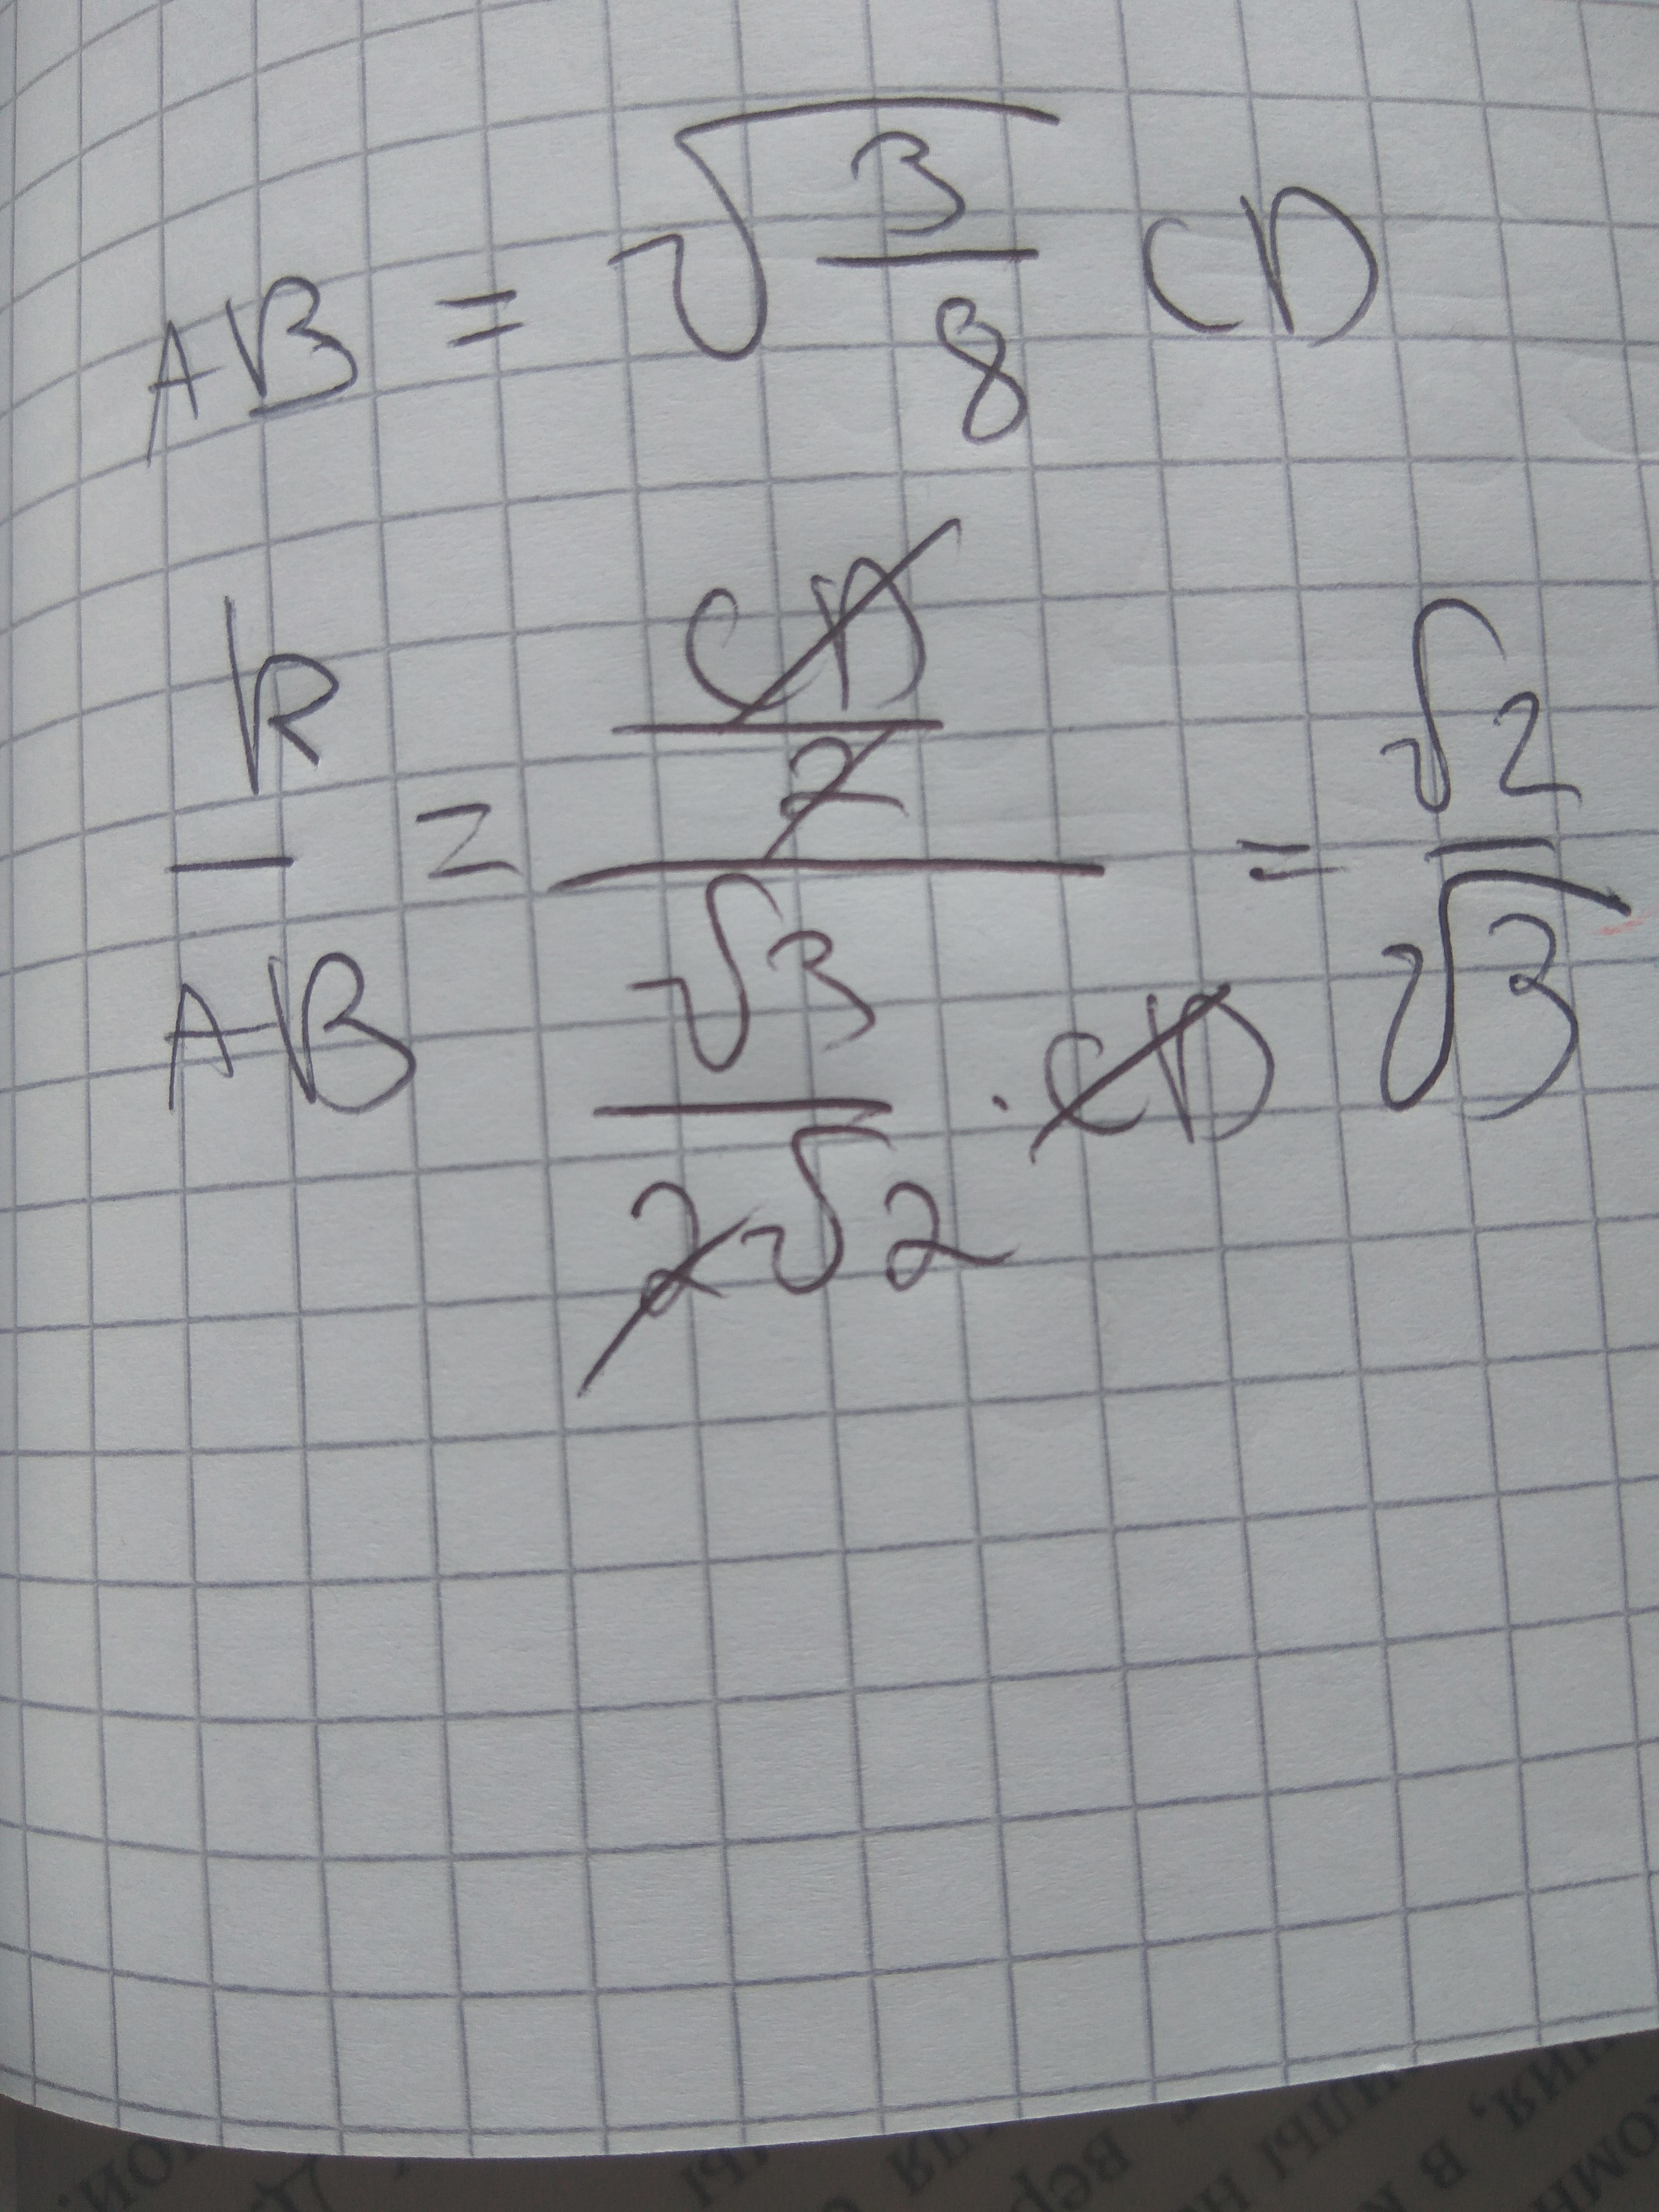 AB = √(3/8) CD
R/AB = (CD/2)/(√3/(2√2) · CD) = √2/√3